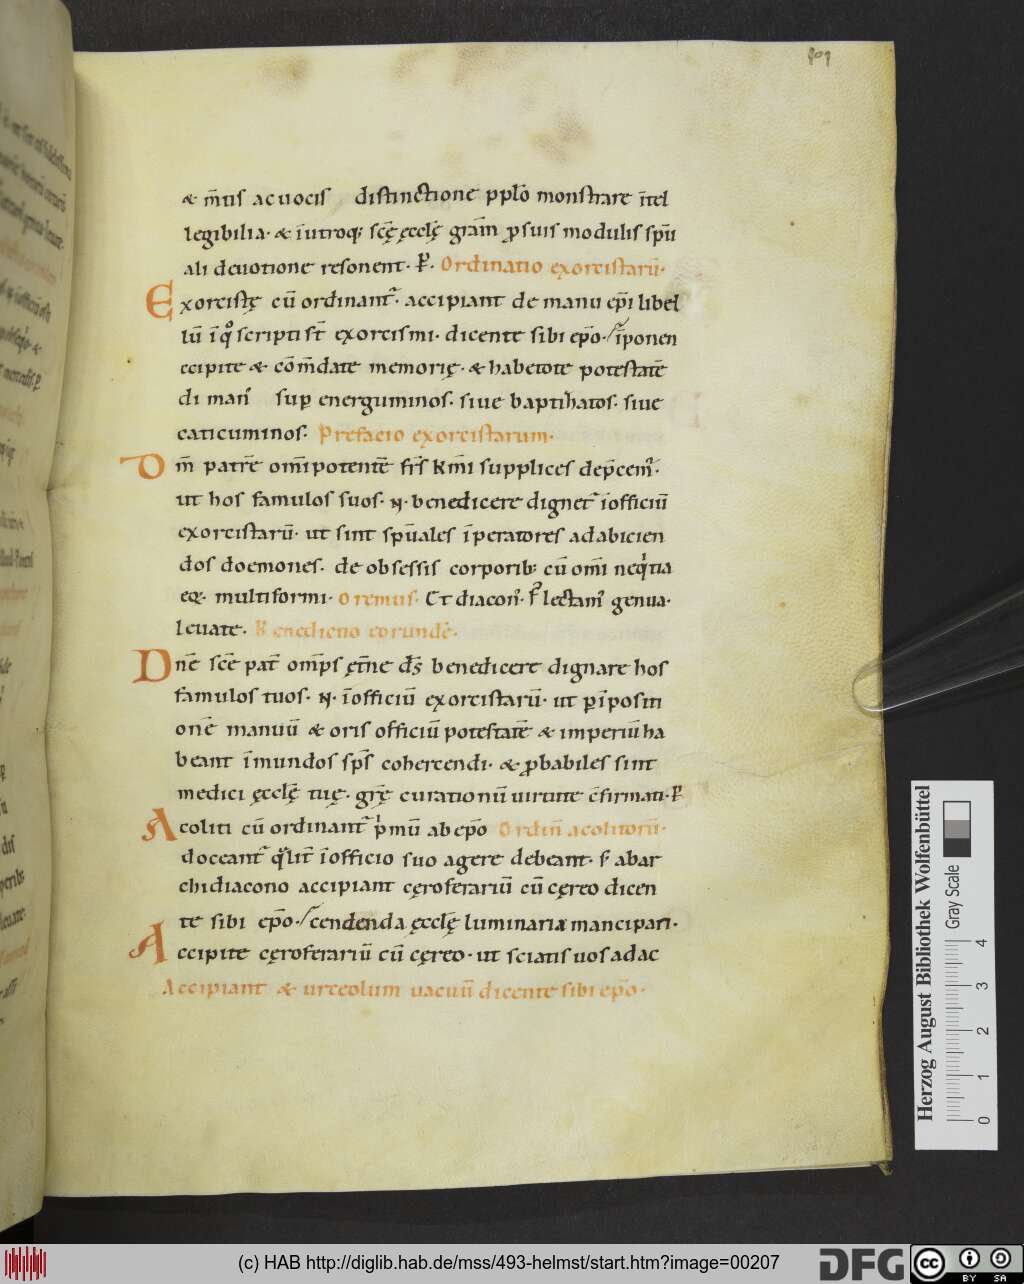 & m̄tis ac uocis distinctione pplō monstrare ītel
legibilia· & īutroq; scę̄ ęcclę̄ grām ꝓsuis modulis spū
ali deuotione resonent· Ordinatio exorcistarū·
Exorcistę cū ordinant᷑· accipiant de manu ep̄i libel
lū īqͦ scripti st̄ exorcismi· dicente sibi ep̄o·
ccipite & cōm̄date memorię· & habetote potestatē
di man̄ sup energuminos· siue baptizatos· siue
caticuminos· Prefacio exorcistarum·
Dm̄ patrē omīpotentē frs̄ kmī supplices dep̄cem᷑·
ut hos famulos suos· N· benedicere dignet᷑ īofficiū
exorcistarū· ut sint spūales īperatores ad abicien
dos doemones· de obsessis corporib; cū omī neqͥtia
eoꝝ multiformi· Oremus· Et diacon᷑· flectam᷑ genua·
leuate· Benedictio eorundē·
Dnē scē pat̄ omp̄s ęt̄ne ds̄ benedicere dignare hos
famulos tuos· N· īofficiū exorcistarū· ut ꝑīpositi
onē manuū & oris officiū potestatē & imperiū ha
beant īmundos sps̄ cohercendi· & ꝓbabiles sint
medici ęcclę̄ tuę· grę̄ curationū uirtute c̄firmati·
Acoliti cū ordinant᷑ pͥmū ab ep̄o Ordin̄ acolitorū·
doceant᷑ qͣlit̄ īofficio suo agere debeant· s̄ abar
chidiacono accipiant cęroferariū cū cęreo dicen
te sibi ep̄o· cendenda ęcclę̄ luminaria mancipari·
Accipite cęroferariū cū cęreo· ut sciatis uos ad ac
Accipiant & urceolum uacuū dicente sibi ep̄o·
Herzog August Bibliothek Wolfenbüttel
Gray Scale
0 1 2 3 4
(c) HAB http://diglib.hab.de/mss/493-helmst/start.htm?image=00207
DFG
cc BY SA